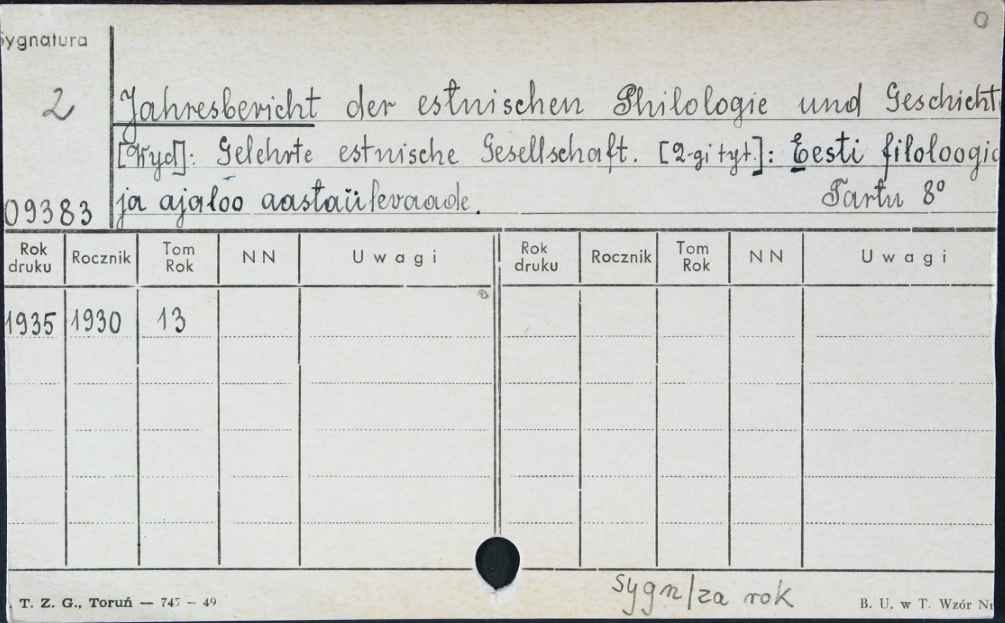 Sygnatura
O
2 Jahresbericht der estnischen Philologie und Geschicht
[Wyd]: Gelehrte estnische Gesellschaft. [2-gi tyt.]: Eesti filoloogia
09383 ja ajaloo aastaülevaade. Tartu 8°
Rok druku Rocznik Tom Rok NN Uwagi Rok druku Rocznik Tom Rok NN Uwagi
1935 1930 13
sygn/za rok
T. Z. G., Toruń — 745 — 49 B. U. w T. Wzór Nr